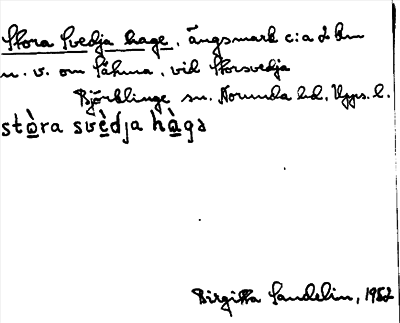 Stora Svedja hage, ängsmark c:a 2 km
n. v. om Sähma, vid Storsvedja
Björklinge sn. Norunda hd, Upps. l.
stòra svèdja hàgə
Birgitta Sandelin, 1952